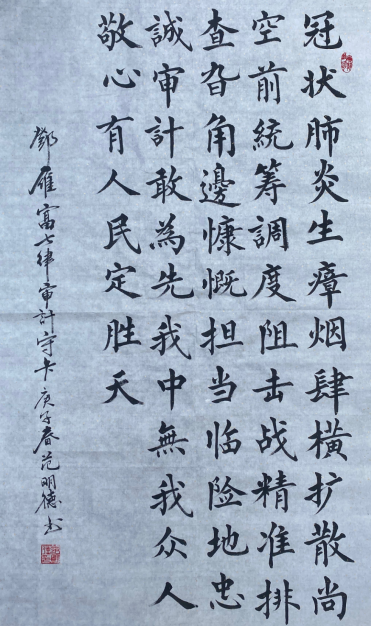 冠状肺炎生瘴烟肆橫扩散尚
空前統筹調度阻击战精准排
查旮角邊慷慨担当临险地忠
誠审計敢為先我中無我众人
敬心有人民定胜天
鄧雁富七律审計守卡庚子春范明德书